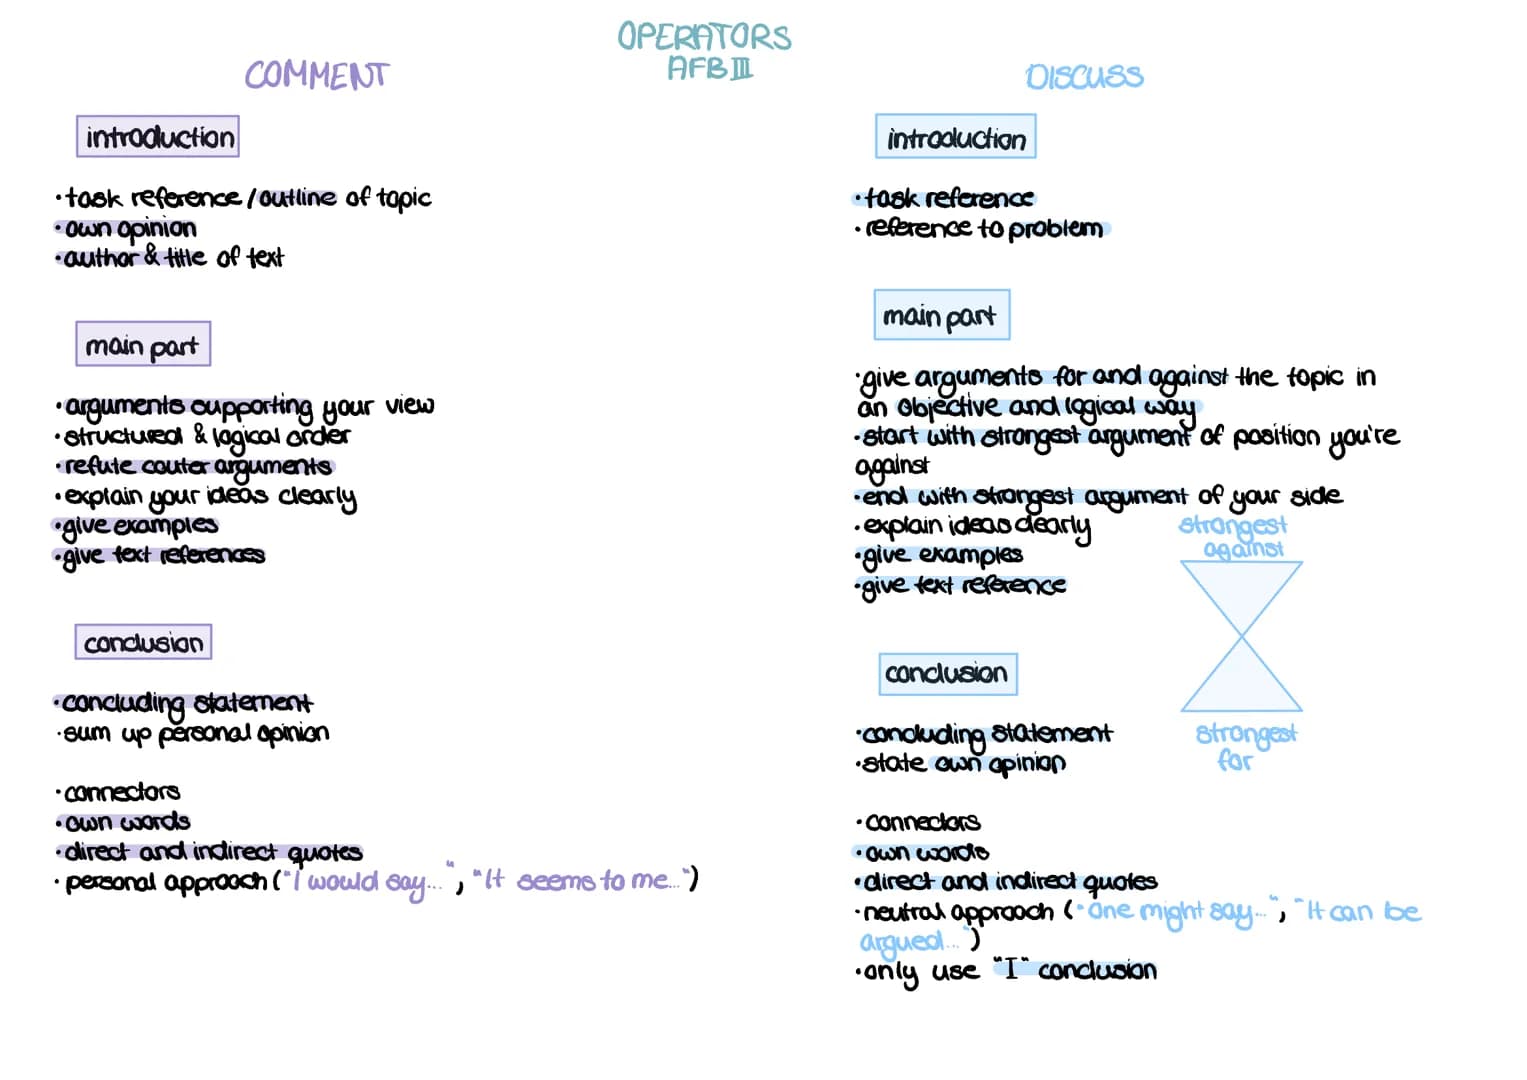 OPERATORS
AFB III
COMMENT
introduction
·task reference / outline of topic
·own opinion
·author & title of text
main part
·arguments supporting your view
·structured & logical order
·refute couter arguments
·explain your ideas clearly
·give examples
·give text references
conclusion
·concluding statement
·sum up personal opinion
·connectors
·own words
·direct and indirect quotes
·personal approach ("I would say...", "It seems to me...")
DISCUSS
introduction
·task reference
·reference to problem
main part
·give arguments for and against the topic in
an objective and logical way
·start with strongest argument of position you're
against
·end with strongest argument of your side
·explain ideas clearly
·give examples
·give text reference
strongest
against
strongest
for
conclusion
·concluding statement
·state own opinion
·connectors
·own words
·direct and indirect quotes
·neutral approach ("One might say...", "It can be
argued...")
·only use "I" conclusion